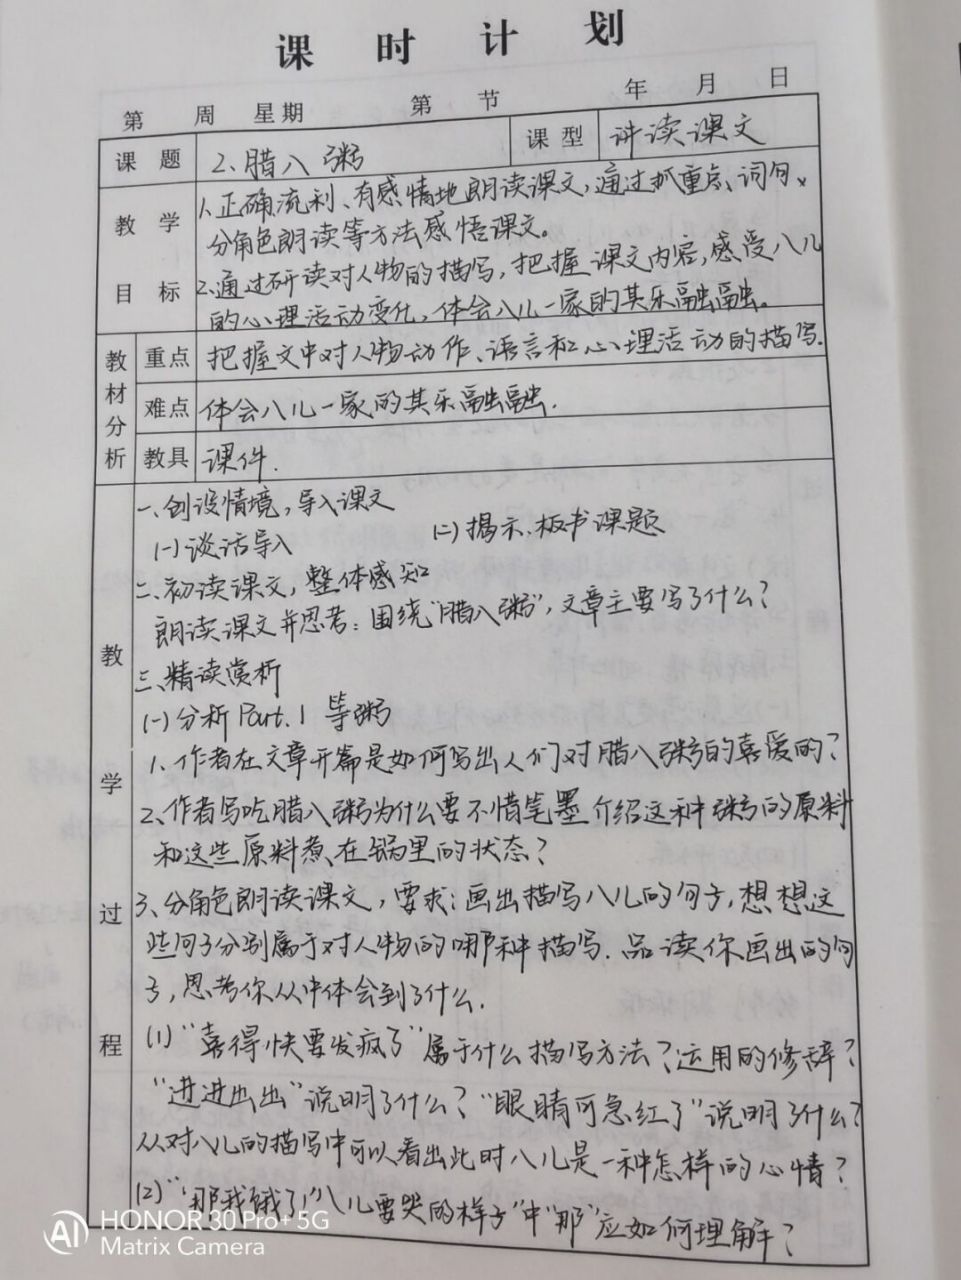 课时计划
第 周 星期 第 节 年 月 日
课题 2.腊八粥 课型 讲读课文
教学目标
1.正确流利、有感情地朗读课文,通过抓重点、词句、
分角色朗读等方法感悟课文。
2.通过研读对人物的描写,把握课文内容,感受八儿
的心理活动变化,体会八儿一家的其乐融融。
教材分析
重点 把握文中对人物动作、语言和心理活动的描写.
难点 体会八儿一家的其乐融融.
教具 课件.
教学过程
一、创设情境,导入课文
(一)谈话导入 (二)揭示、板书课题
二、初读课文,整体感知
朗读课文并思考:围绕“腊八粥”,文章主要写了什么?
三、精读赏析
(一)分析Part.1 等粥
1.作者在文章开篇是如何写出人们对腊八粥的喜爱的?
2.作者写吃腊八粥为什么要不惜笔墨介绍这种粥的原料
和这些原料煮在锅里的状态?
3.分角色朗读课文,要求:画出描写八儿的句子,想想这
些句子分别属于对人物的哪种描写.品读你画出的句
子,思考你从中体会到了什么.
(1)“喜得快要发疯了”属于什么描写方法?运用的修辞?
“进进出出”说明了什么?“眼睛可急红了”说明了什么?
从对八儿的描写中可以看出此时八儿是一种怎样的心情?
(2)“那我饿了!”八儿要哭的样子”中“那”应如何理解?
AI HONOR 30 Pro+ 5G
Matrix Camera